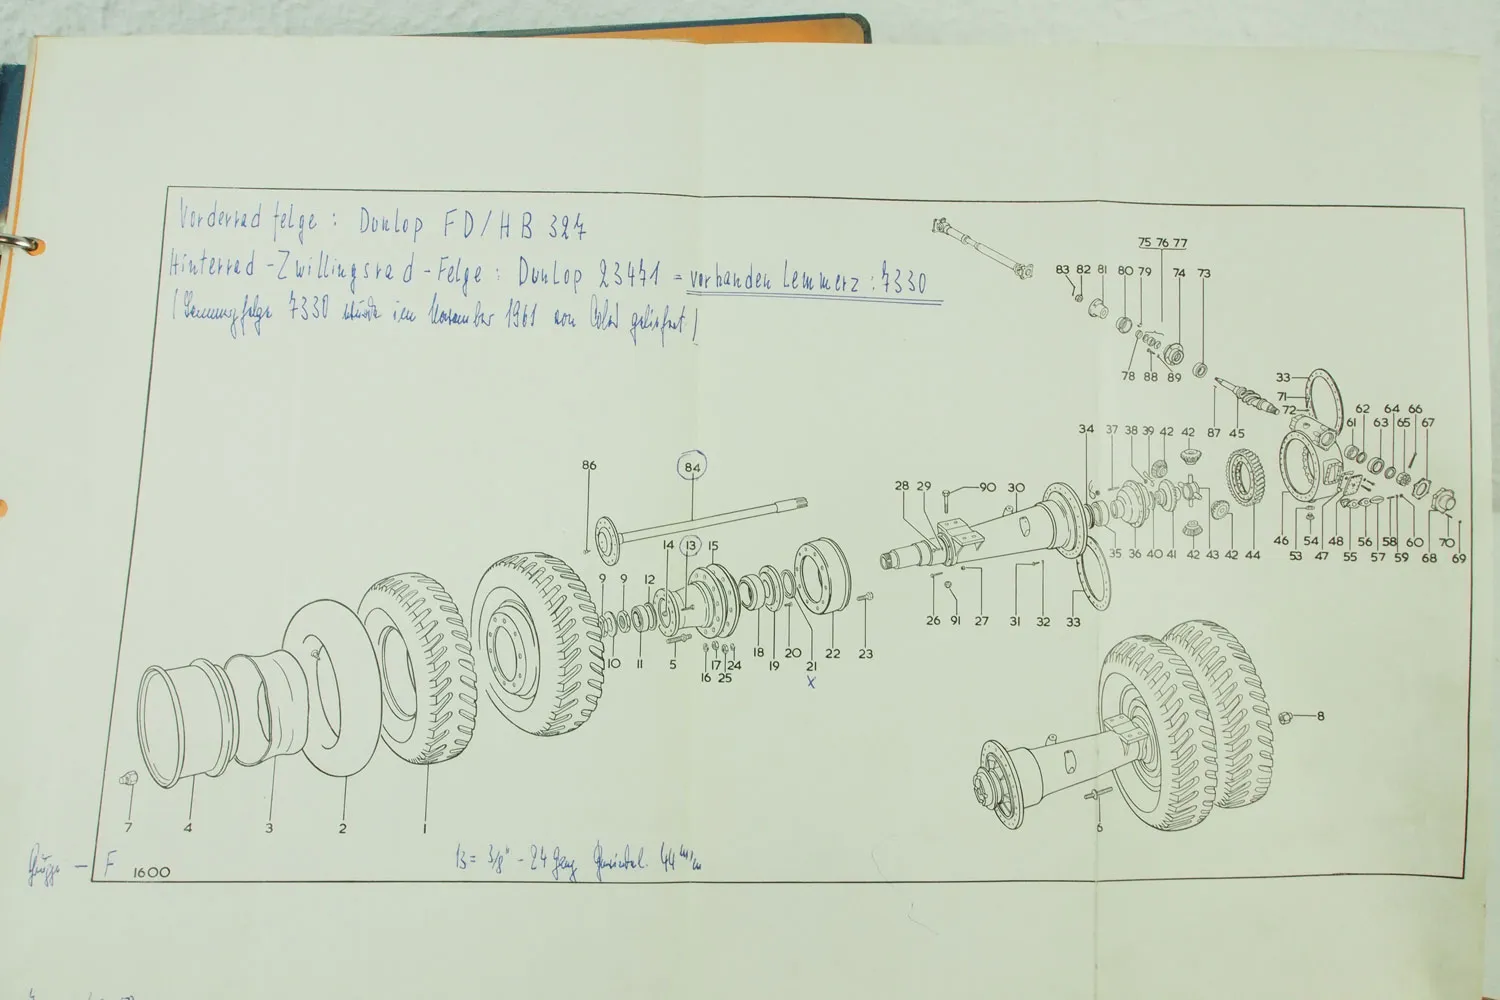 Vorderrad felge : Dunlop FD/HB 327
Hinterrad-Zwillingsrad-Felge : Dunlop 23471 = vorhanden Lemmerz : 7330
7330 im November 1961 von geliefert !
75 76 77
83 82 81 80 79 74 73
78 88 89
33
71
72
87 45
62 64 66
61 63 65 67
34 37 38 39 42 42
86
84
28 29 90 30
35 36 40 41 42 43 42 44
46 53 54 47 48 55 56 57 58 59 60 68 70 69
14 13 15
9 9 12
26 91 27 31 32 33
10 11 5 16 17 25 24 18 19 20 21 22 23
x
8
6
7 4 3 2 1
Gruppe - F 1600
13 = 3/8" - 24 44 m/m